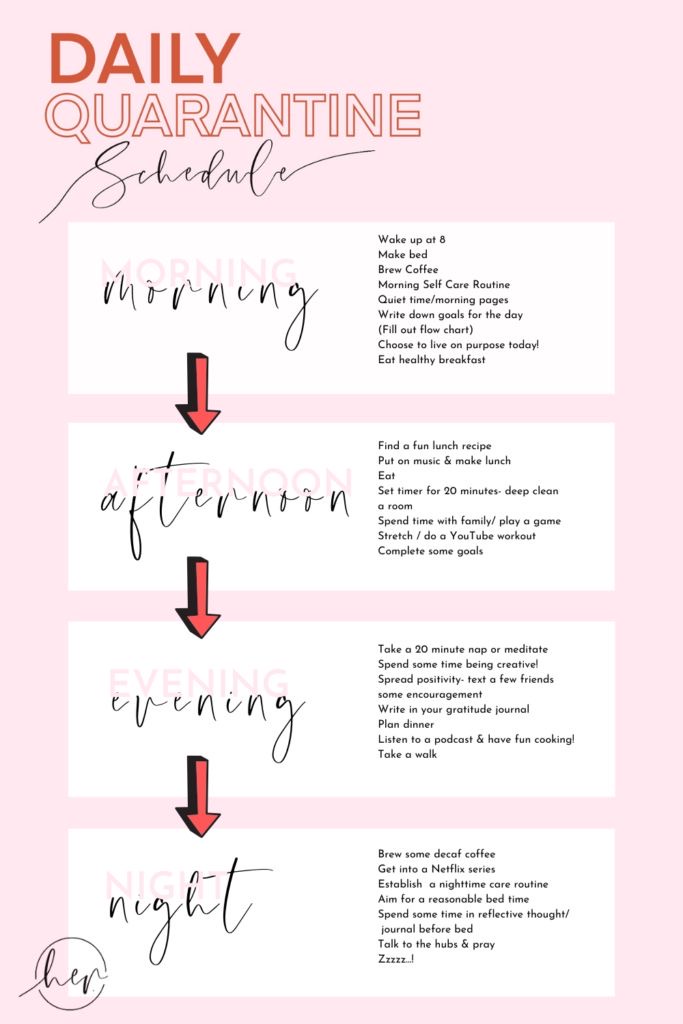 DAILY
QUARANTINE
Schedule
MORNING
morning
Wake up at 8
Make bed
Brew Coffee
Morning Self Care Routine
Quiet time/morning pages
Write down goals for the day
(Fill out flow chart)
Choose to live on purpose today!
Eat healthy breakfast
AFTERNOON
afternoon
Find a fun lunch recipe
Put on music & make lunch
Eat
Set timer for 20 minutes- deep clean
a room
Spend time with family/ play a game
Stretch / do a YouTube workout
Complete some goals
EVENING
evening
Take a 20 minute nap or meditate
Spend some time being creative!
Spread positivity- text a few friends
some encouragement
Write in your gratitude journal
Plan dinner
Listen to a podcast & have fun cooking!
Take a walk
NIGHT
night
Brew some decaf coffee
Get into a Netflix series
Establish  a nighttime care routine
Aim for a reasonable bed time
Spend some time in reflective thought/
journal before bed
Talk to the hubs & pray
Zzzzz...!
her.